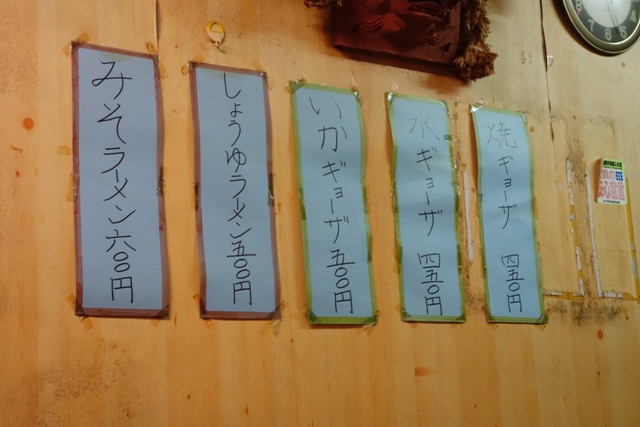 みそラーメン六〇〇円
しょうゆラーメン五〇〇円
いかギョーザ五〇〇円
水ギョーザ 四五〇円
焼ギョーザ 四五〇円